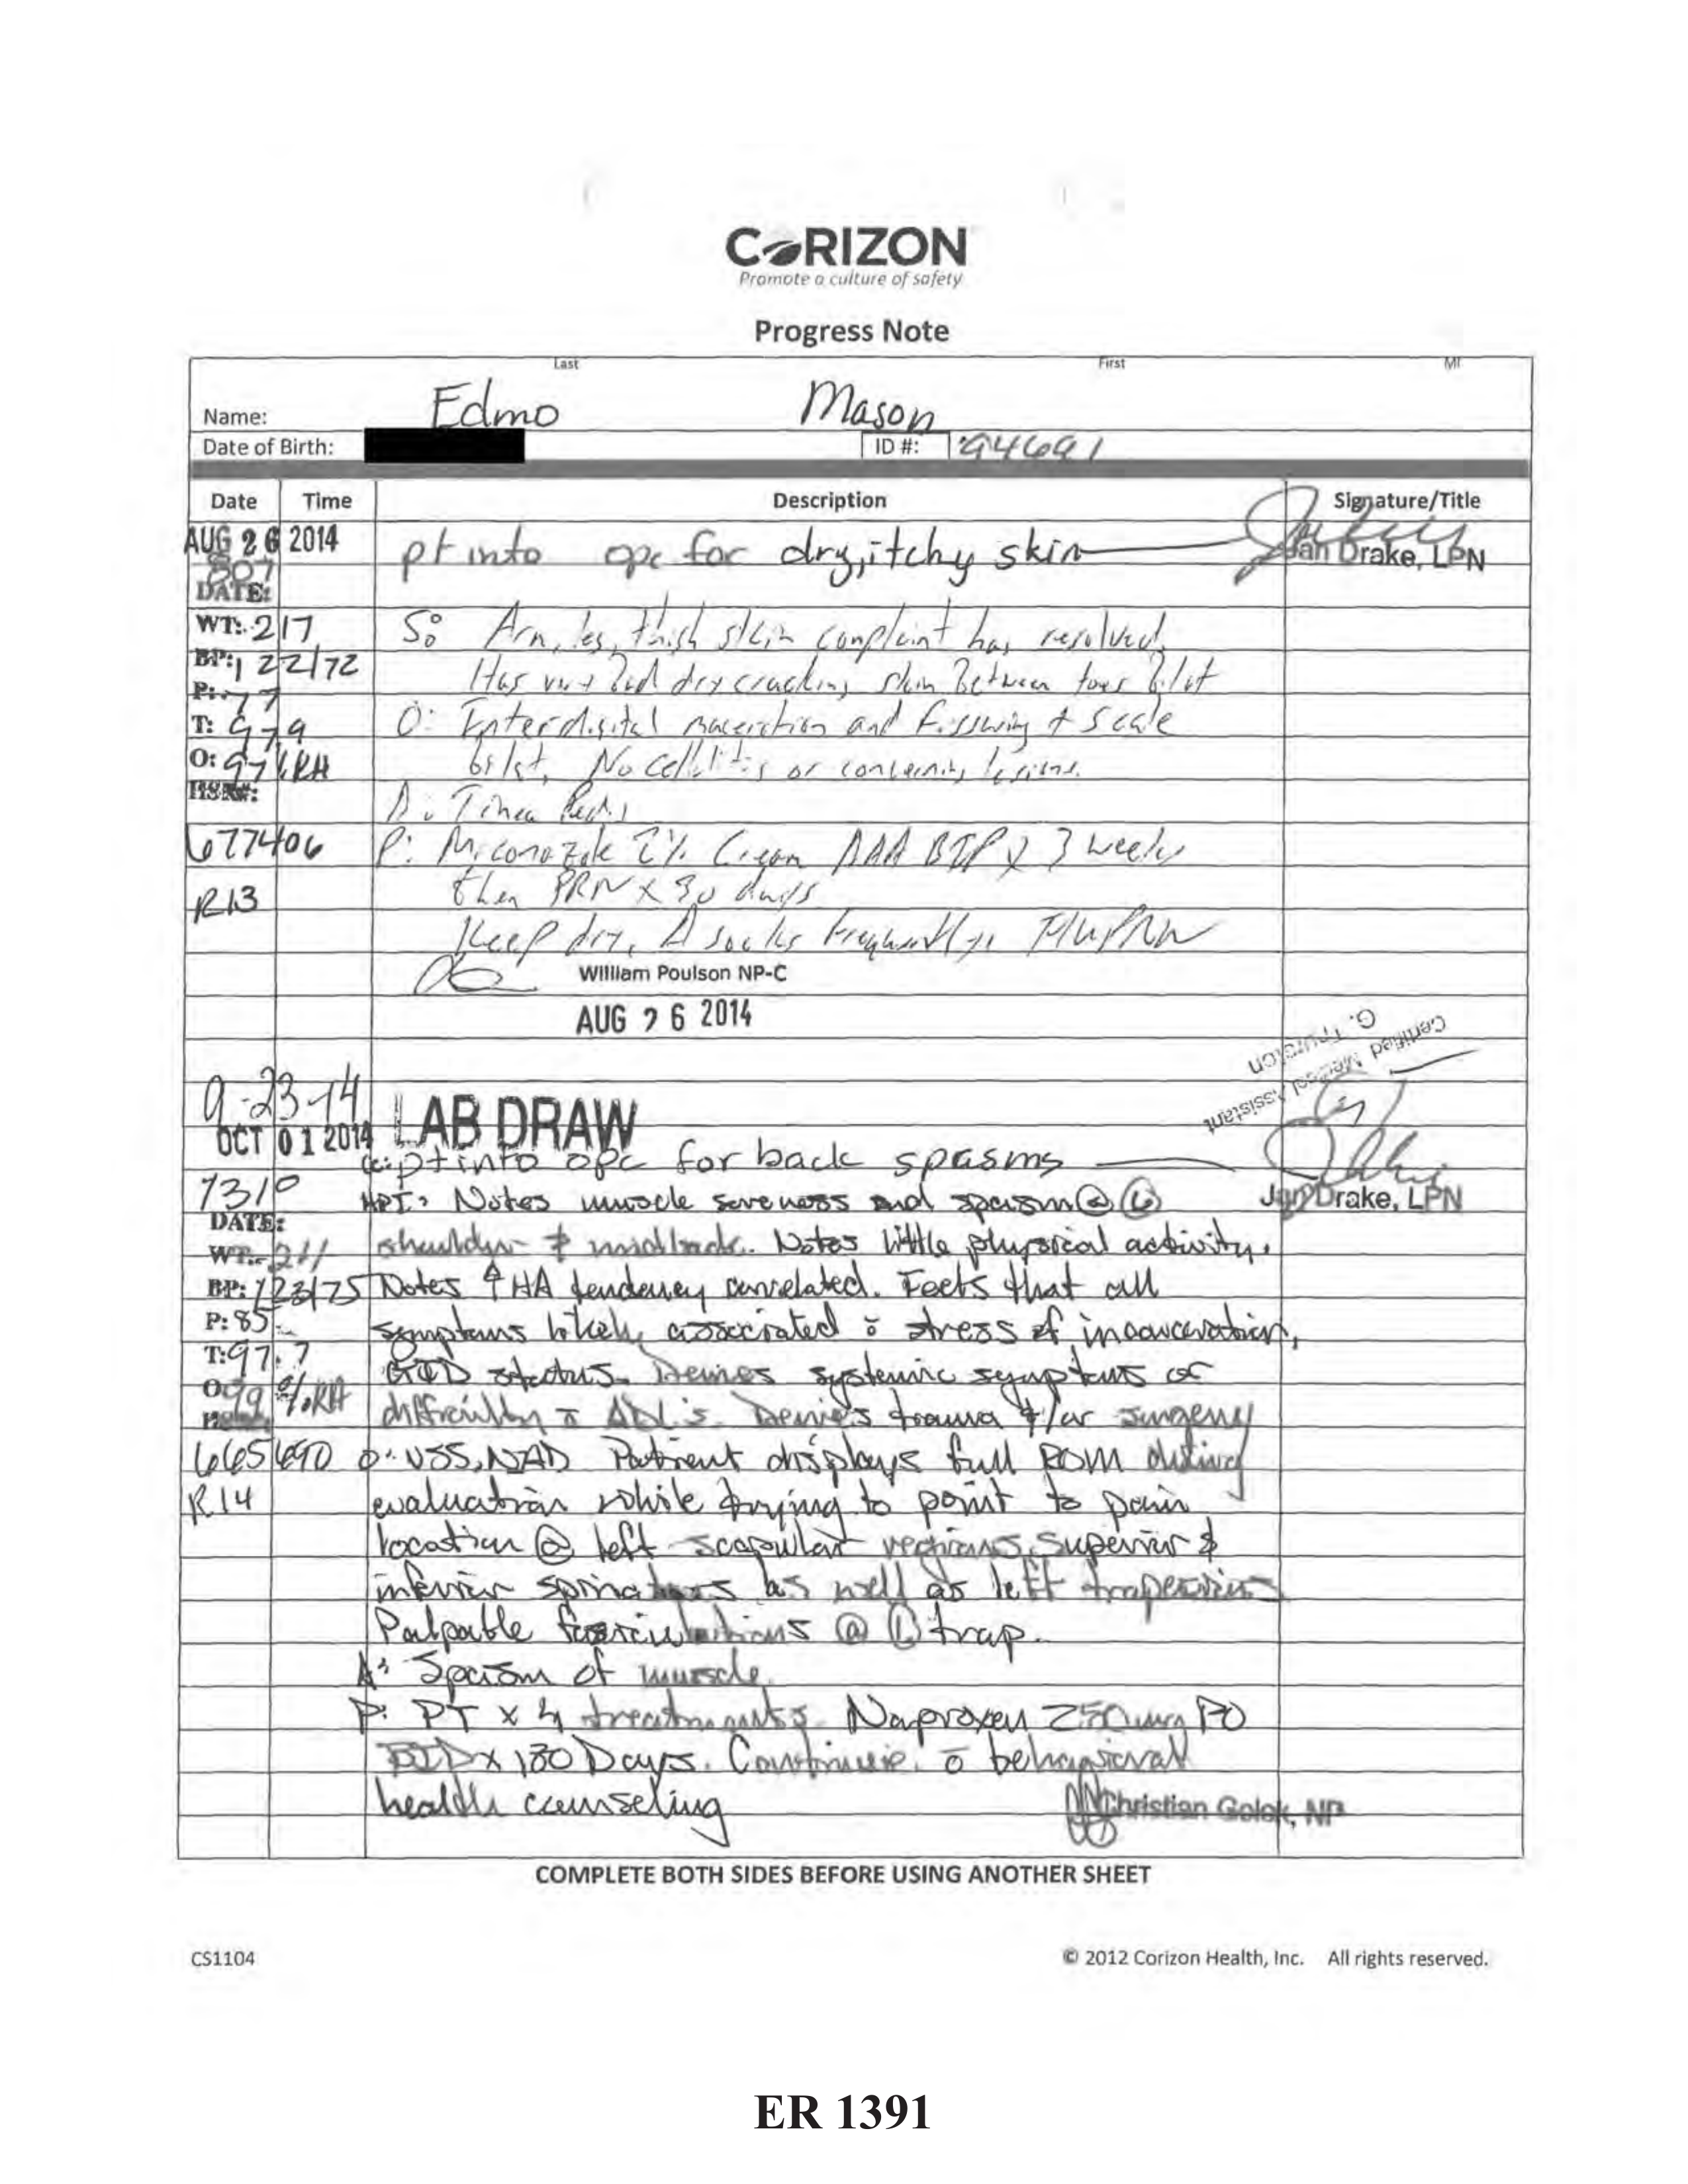 CORIZON
Promote a culture of safety
Progress Note
Last First MI
Name: Edmo Mason
Date of Birth: ID #: 94691
Date Time Description Signature/Title
AUG 26 2014 pt into opc for dry, itchy skin Jan Drake, LPN
807
DATE:
WT: 217 S: Arm, leg, thigh skin complaint has resolved.
BP: 122/72 Has dry cracking skin Between toes
P: 77
T: 979 O: Interdigital maceration and fissuring + scale
O: 97% RA No cellulitis or concerning lesions.
HSR#:
A: Tinea Pedis
677406 P: Miconazole 2% Cream AAA BID x 3 weeks
R13 then PRN x 30 days
Keep dry, Δ socks frequently, F/U PRN
William Poulson NP-C
AUG 26 2014
G. Thurston
Certified Medical Assistant
9-23-14 LAB DRAW
OCT 01 2014 cc: pt into opc for back spasms
1310 HPI: Notes muscle soreness and spasm @ (L) Jan Drake, LPN
DATE:
WT: 211 shoulder + midback. Notes little physical activity.
BP: 123/75 Notes ↑ HA tendency correlated. Feels that all
P: 85 symptoms likely associated c̄ stress of incarceration,
T: 97.7 GID status. Denies systemic symptoms or
O: 99% RA difficulty c̄ ADL's. Denies trauma &/or surgery
665690 O: VSS, NAD Patient displays full ROM during
R14 evaluation while trying to point to pain
location @ left scapular regions, superior &
inferior spinatus as well as left trapezius
Palpable fasciculations @ (L) trap.
A: Spasm of muscle.
P: PT x 4 treatments. Naproxen 250 mg PO
BID x 180 Days. Continue c̄ behavioral
health counseling Christian Golok, NP
COMPLETE BOTH SIDES BEFORE USING ANOTHER SHEET
CS1104 © 2012 Corizon Health, Inc. All rights reserved.
ER 1391